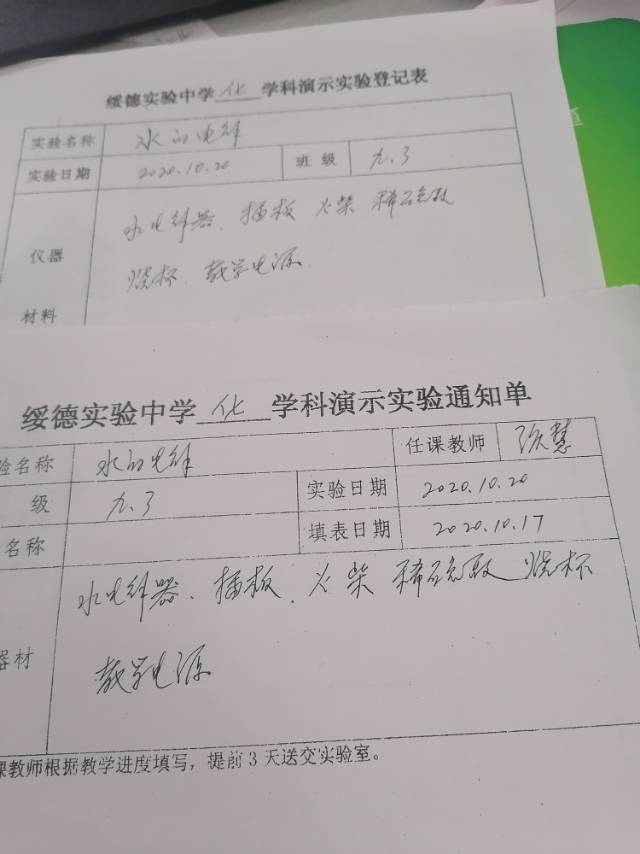 绥德实验中学 化 学科演示实验登记表
实验名称 水的电解
实验日期 2020.10.20 班级 九.3
仪器 水电解器、插板 火柴 稀硫酸
烧杯、教学电源
材料
绥德实验中学 化 学科演示实验通知单
验名称 水的电解 任课教师 张慧
级 九.3 实验日期 2020.10.20
名称 填表日期 2020.10.17
水电解器、插板、火柴 稀硫酸 烧杯
器材 教学电源
课教师根据教学进度填写，提前3天送交实验室。